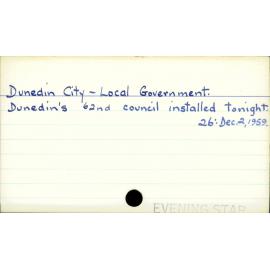 Dunedin City - Local Government.
Dunedin's 62nd council installed tonight.
26: Dec. 2, 1959.
EVENING STAR